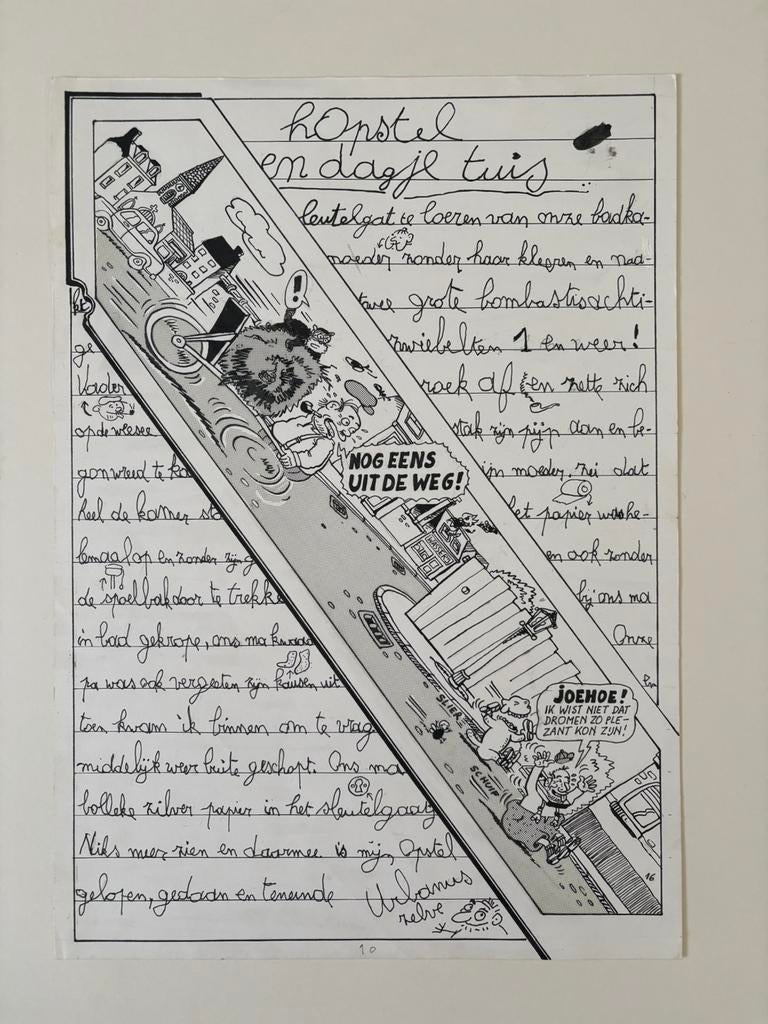 hOpstel
en dagje tuis
leutelgat te loeren van onze badka-
moeder zonder haar kleeren en naa-
twee grote bombastisachti-
zwiebelten 1 en weer!
ge
Vader
roek af en zette zich
op de weesee
stak zijn pijp aan en be-
gon wreed te ka
ijn moeder zei dat
heel de kamer sto
et papier washe-
lemaal op en zonder zijn g
en ook zonder
de spoelbak door te trekke
bij ons ma
in bad gekrope, ons ma kwaad
Onze
pa was ook vergeten zijn kausen uit
en
toen kwam ik binnen om te vrag
middelijk weer buite geschopt. Ons ma
bolleke zilver papier in het sleutelgaatj
Niks meer zien en daarmee is mijn Opstel
gelopen, gedaan en teneinde
Urbanus
zelve
!
NOG EENS
UIT DE WEG!
SLIER
SCHUIP
JOEHOE!
IK WIST NIET DAT
DROMEN ZO PLE-
ZANT KON ZIJN!
16
10